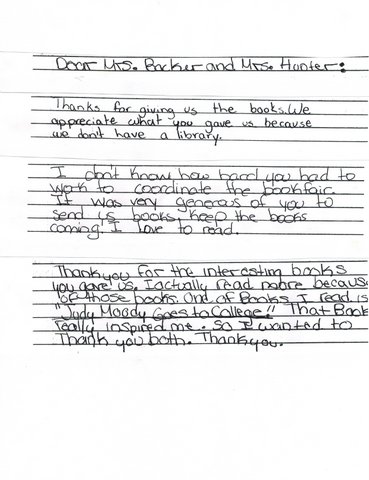 Dear Mrs. Packer and Mrs. Hunter:
Thanks for giving us the books. We
appreciate what you gave us because
we don't have a library.
I don't know how hard you had to
work to coordinate the bookfair.
It was very generous of you to
send us books, keep the books
coming. I love to read.
Thank you for the interesting books
you gave us. I actually read more because
of those books. One of Books I read is
"Judy Moody Goes to College." That Book
really inspired me. So I wanted to
Thank you both. Thank you.